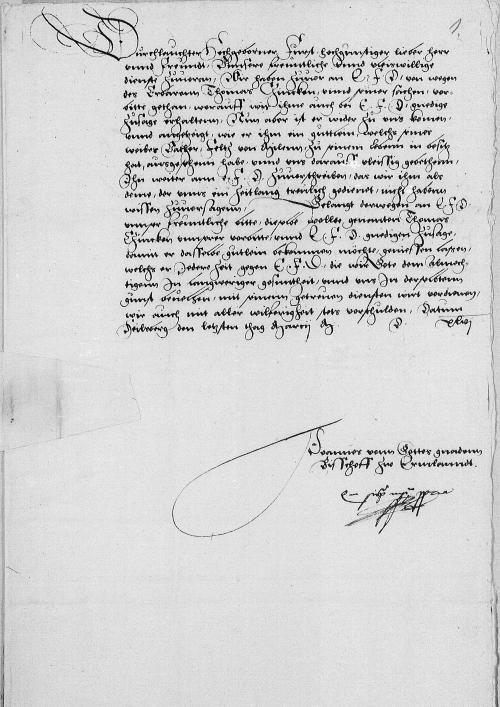 1.
Durchlauchter Hochgeborner Furst hochgunstiger lieber herr
unnd Freundt. Unnsere freuntliche unnd vheirwillige
dienste zuuoran. Wir haben zuuor an E. F. D. von wegen
des Erbarenn Thomas, unnd seiner sachen, vor-
bitte gethan, worauff wir ihme auch bei E. F. D. gnedige
zusage erhaltenn. Nun aber ist er wider zu uns komen,
unnd angezeigt, wie er ihm ein guttlein, welchs seines
weibes Vather, Felth von Mylenn, zu seinem lebenn in besitz
hat, ausgesehenn habe unnd uns darauff vleissig gebethenn,
Ihn weiter ann E. F. D. zuuerschreiben, das wir ihm als
deme, der unns ein zeitlang treulich gedienet, nicht habenn
wissen zuuorsagenn, Gelangt derwegen an E F D
unnser freuntliche bitte, dieselbe wollte genanten Thomas
unnser vorbitte, unnd E. F. D. gnedigen zusage,
damit er dasselbe gutlein bekommen mochte, geniessen lassen,
welchs er Jederzeit gegen E. F. D. die wir Gote dem Almech-
tigenn In langweriger gesuntheit, unnd uns In derselbtenn
gunst beuelhen, mit seinem getreuen diensten wirt vordienen,
wir auch mit aller wilferigkeit stets vorschulden, Datum
Heilsberg den letzten thag Marcii A D. xlvi
Joannes vonn Gottes gnadenn
Bisschoff zue Ermlanndt.